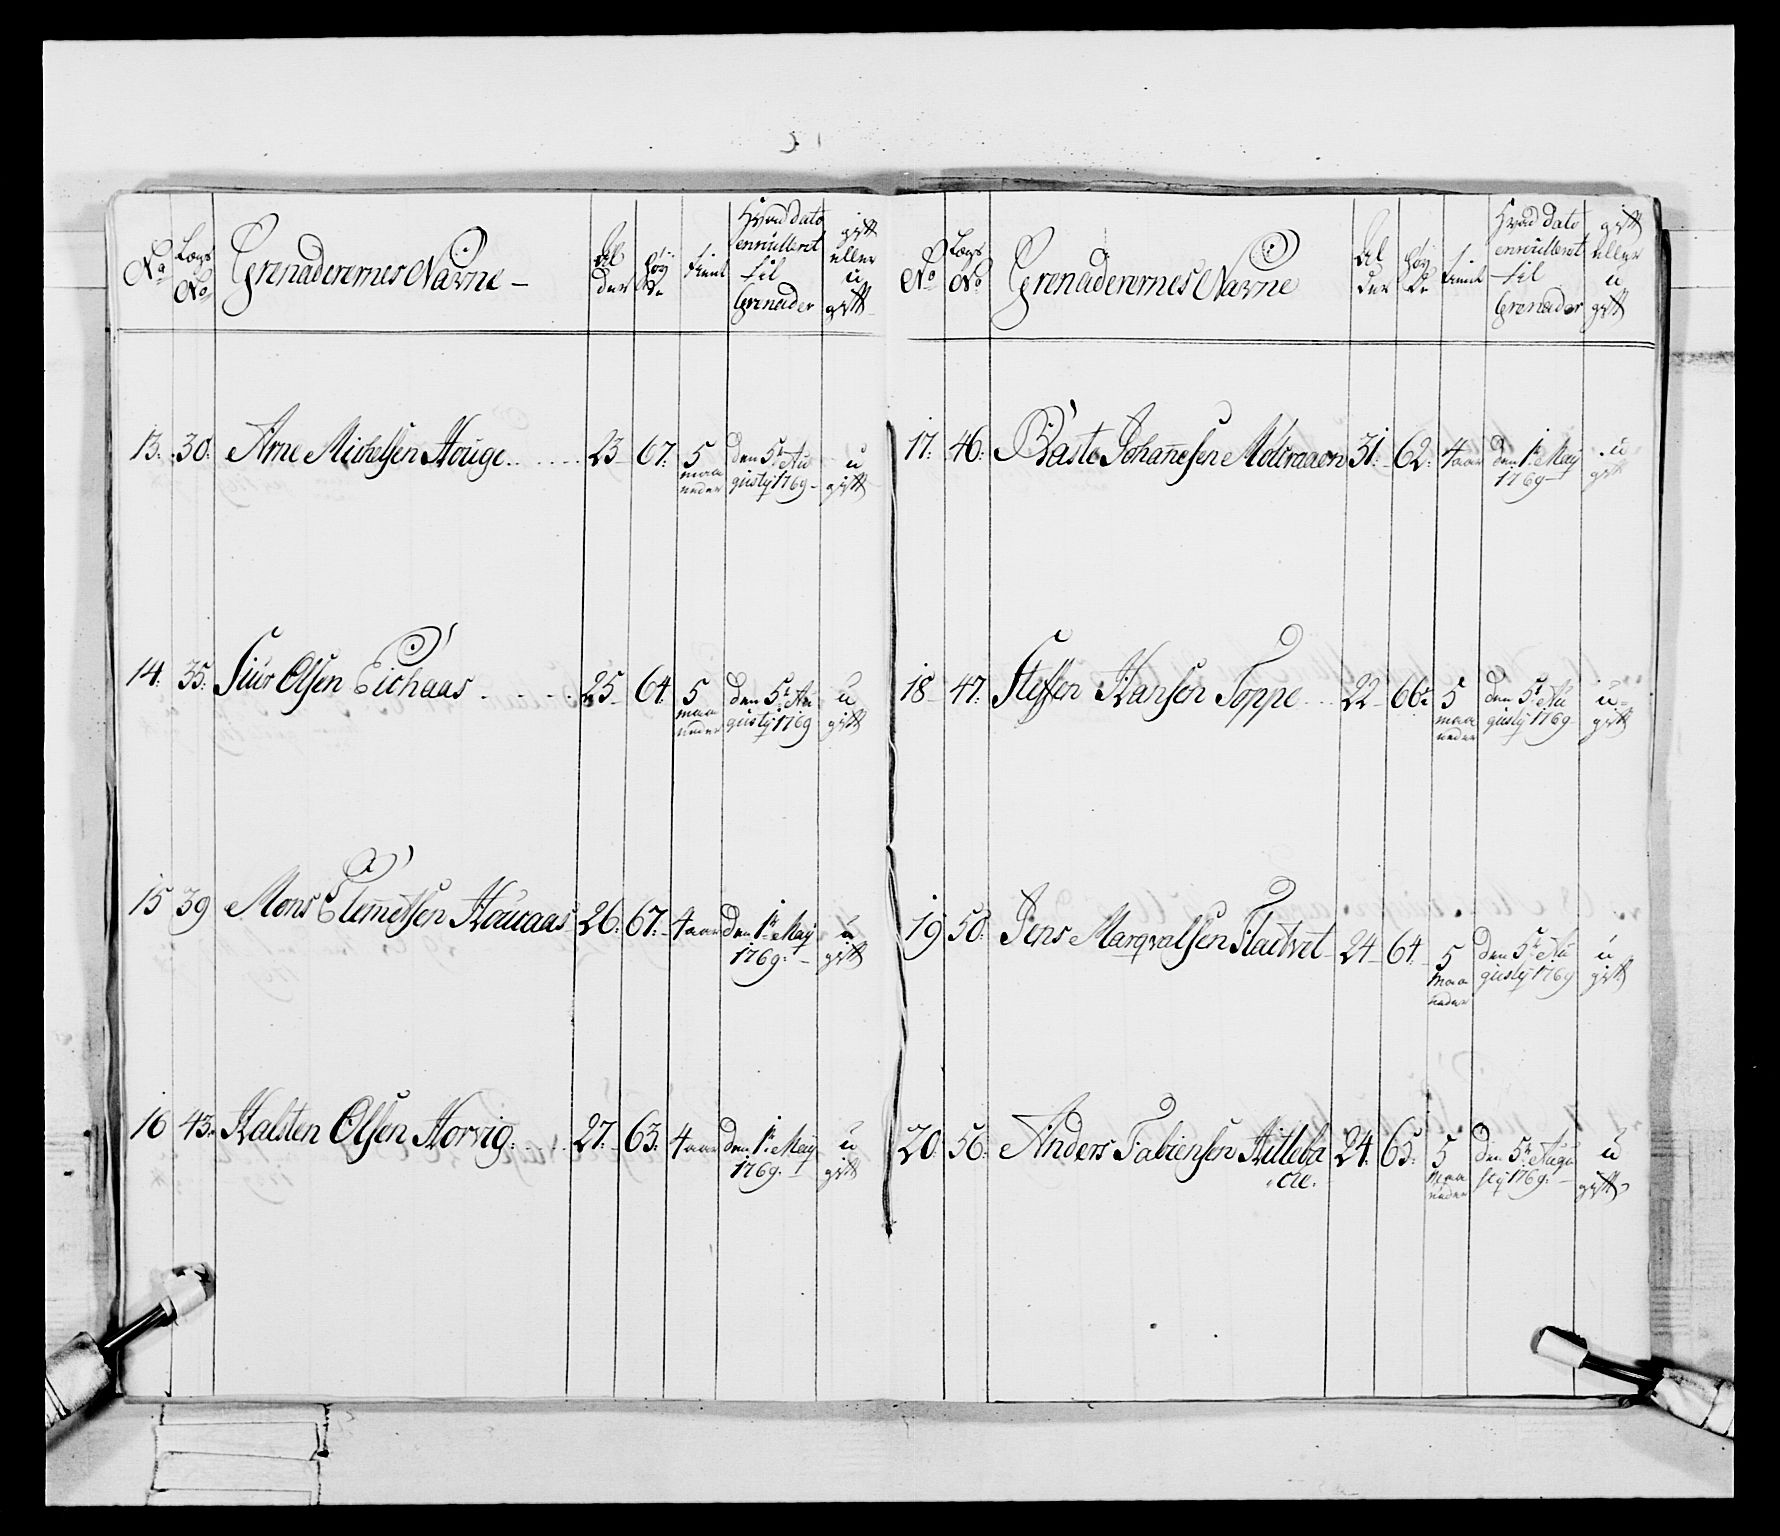 No Lægs No Grenaderernes Navne - Al der Høy de tient Hvad dato enrulleret til Grenader gift eller u gift
13. 30. Arne Michelsen Houge 23 67. 5 maa neder den 5t Au gustij 1769 u gift
14. 35. Siur Olsen Eichaas 25 64 5 maa neder den 5t Au gustij 1769 u gift
15 39 Mons Clemetsen Houcaas 26. 67. 4 aar den 1te Maij 1769. u gift
16 43. Halsten Olsen Horvig. 27. 63. 4 aar den 1te Maij 1769. u gift
No Lægs No Grenaderernes Navne Al der Høy de tient Hvad dato enrulleret til Grenader gift eller u gift
17. 46. Baste Johanesen 31. 62. 4 aar den 1te May 1769 u gift
18 47. Steffen Hansen Toppe 22 66. 5 maa neder den 5t Au gustij 1769 u gift
19 50. Jens Marqvalsen Flaetvet 24 64 5 maa neder den 5t Au gustij 1769 u gift
20. 56. Anders Fabiensen Hitleba cke. 24. 65. 5 maa neder den 5te Augu stij 1769. u gift